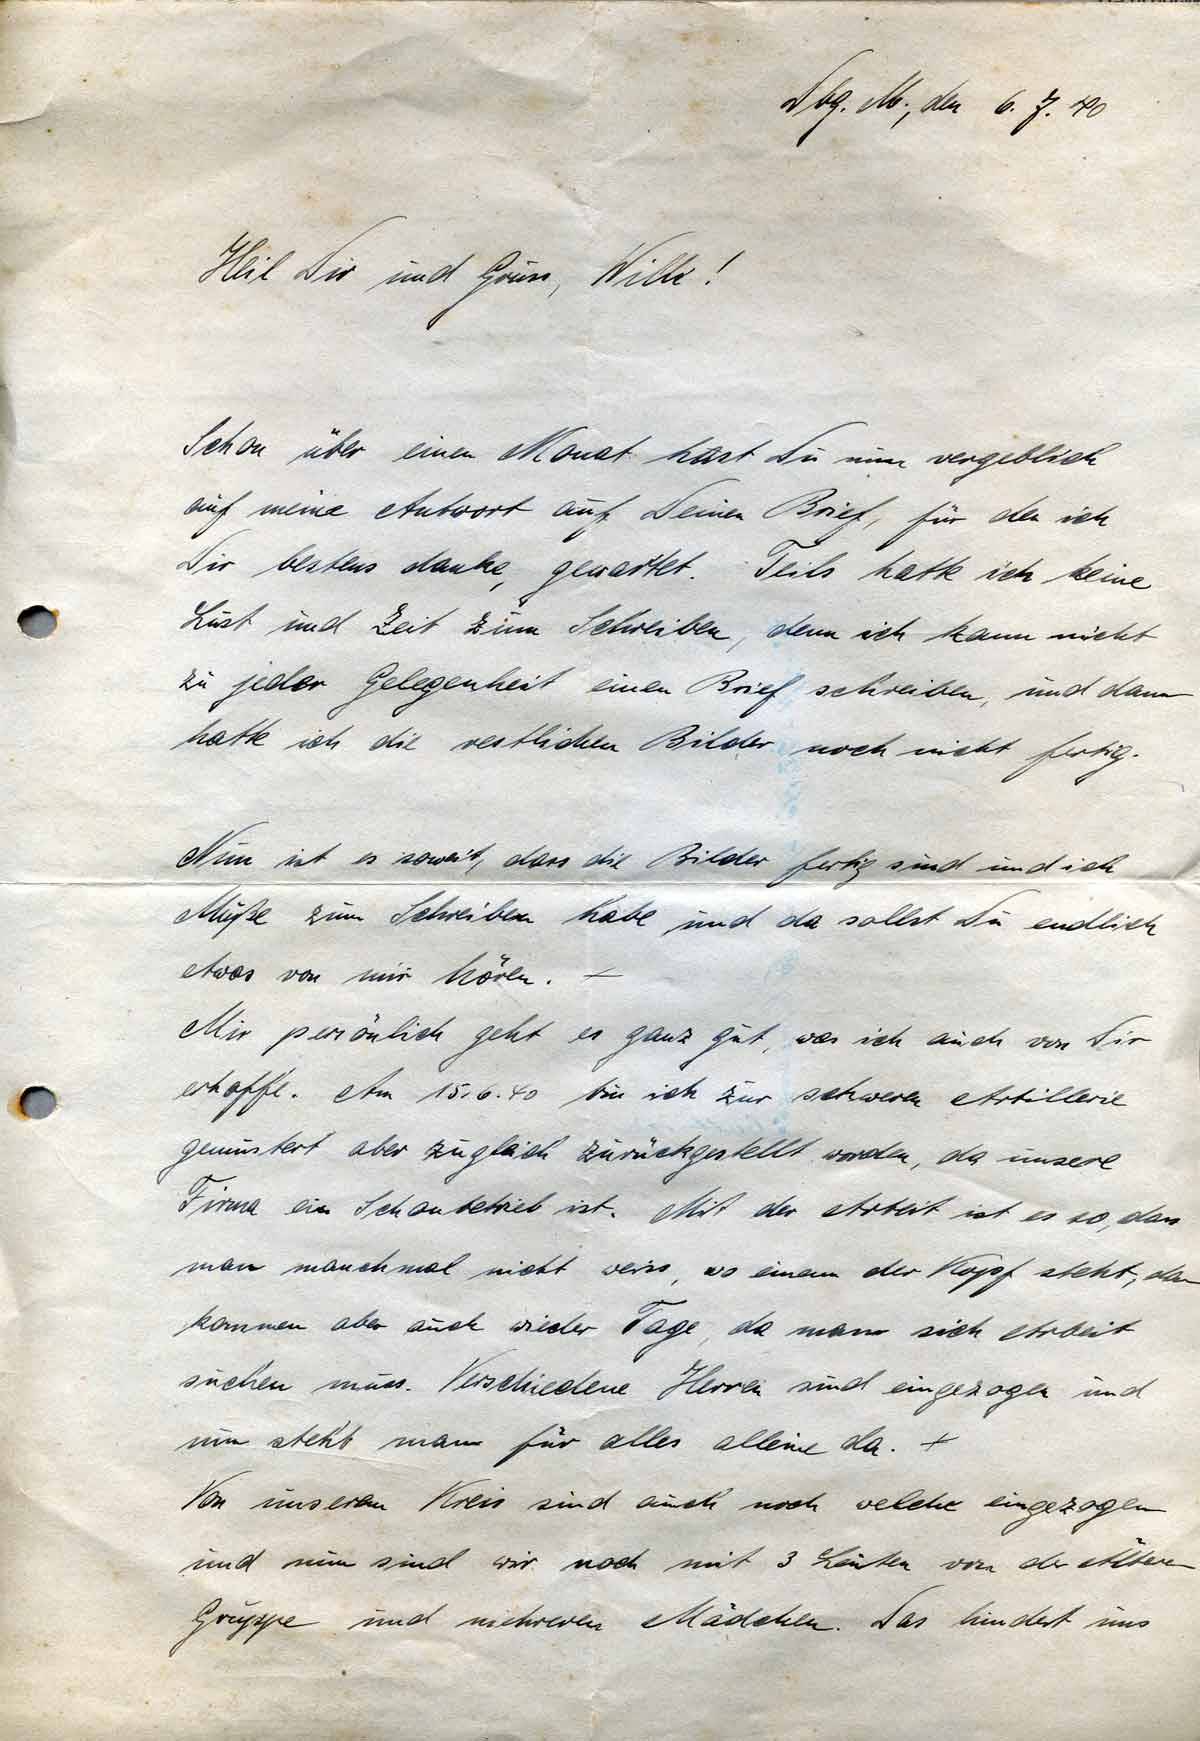 Dbg. M., den 6. 7. 40
Heil Dir und Gruss, Willi!
Schon über einen Monat hast Du nun vergeblich
auf meine Antwort auf Deinen Brief, für den ich
Dir bestens danke, gewartet. Teils hatte ich keine
Lust und Zeit zum Schreiben, denn ich kann nicht
zu jeder Gelegenheit einen Brief schreiben, und dann
hatte ich die restlichen Bilder noch nicht fertig.
Nun ist es soweit, dass die Bilder fertig sind und ich
Muße zum Schreiben habe und da sollst Du endlich
etwas von mir hören. +
Mir persönlich geht es ganz gut, was ich auch von Dir
erhoffe. Am 15.6.40 bin ich zur schweren Artillerie
gemustert aber zugleich zurückgestellt worden, da unsere
Firma ein Schonbetrieb ist. Mit der Arbeit ist es so, dass
man manchmal nicht weiss, wo einem der Kopf steht, dann
kommen aber auch wieder Tage, da man sich Arbeit
suchen muss. Verschiedene Herren sind eingezogen und
nun steht man für alles alleine da. +
Von unserem Kreis sind auch noch welche eingezogen
und nun sind wir noch mit 3 Leuten von der älteren
Gruppe und mehreren Mädchen. Das hindert uns